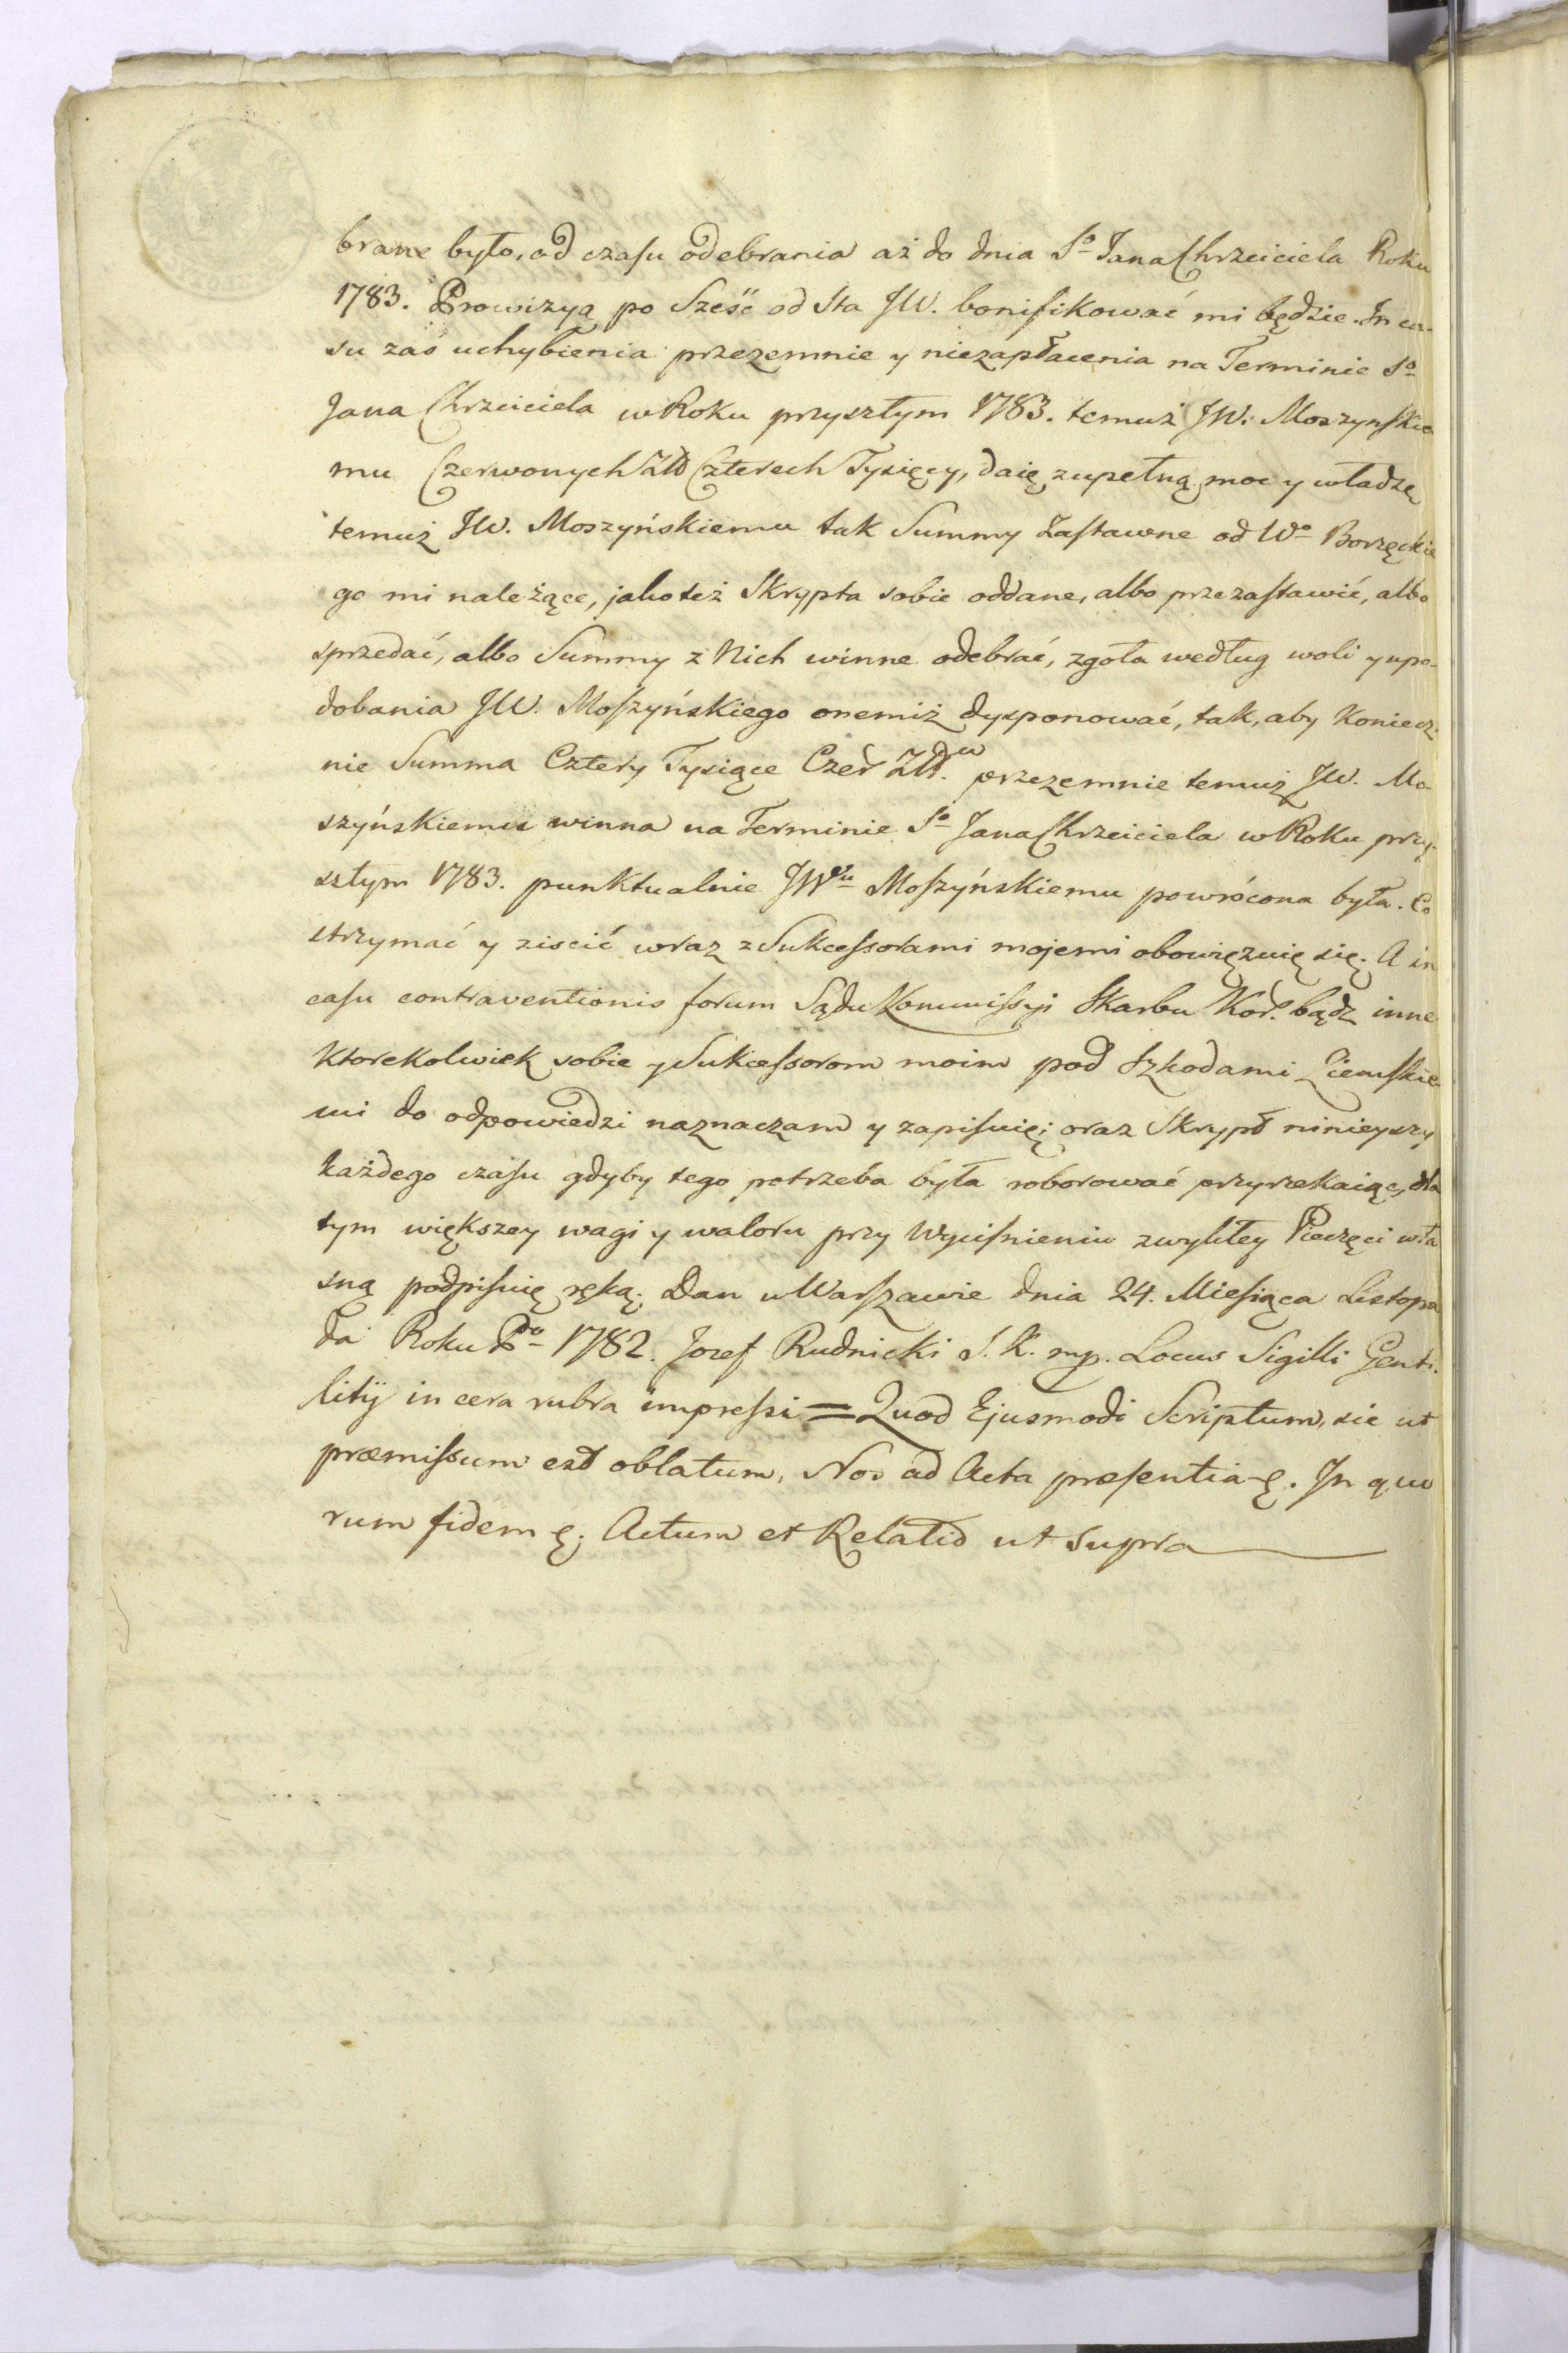 brane było, od czasu odebrania aż do dnia Sº Jana Chrzciciela Roku
1783. Prowizyą po Sześć od sta JW. bonifikować mi będzie. In ca-
su zaś uchybienia przezemnie y niezapłacenia na Terminie Sº
Jana Chrzciciela w Roku przyszłym 1783. temuż JW. Moszynskie
mu Czerwonych Złł Czterech Tysięcy, daię zupełną moc y władzę
temuż JW. Moszyńskiemu tak Summy Zastawne od Wº Borzęckie
go mi należące, jako też Skrypta sobie oddane, albo przezastawić, albo
sprzedać, albo Summy z Nich winne odebrać, zgoła według woli y upo-
dobania JW. Moszyńskiego onemiż dysponować, tak, aby koniecz-
nie Summa Cztery Tysiące Czer Złł.ch przezemnie temuż JW. Mo-
szyńskiemu winna na Terminie Sº Jana Chrzciciela w Roku przy-
szłym 1783. punktualnie JWmu Moszyńskiemu powrócona była. Co
strzymać y ziscić wraz z Sukcessorami mojemi obowięzuię się. A in
casu contraventionis forum Sądu Kommissyi Skarbu Kor. bądz inne
ktorekolwiek sobie y Sukcessorom moim pod Szkodami Ziemskie
mi do odpowiedzi naznaczam y zapisuię; oraz Skrypt ninieyszy
każdego czasu gdyby tego potrzeba była roborować przyrzekaiąc, dla
tym większey wagi y waloru przy Wyciśnieniu zwykłey Pieczęci wła
sną podpisuię ręką. Dan w Warszawie dnia 24. Miesiąca Listopa
da Roku Pº 1782. Jozef Rudnicki S. K. mp. Locus Sigilli Genti-
litij in cera rubra impressi = Quod Ejusmodi Scriptum, sic ut
præmissum est oblatum, Nos ad Acta præsentia &. In quo
rum fidem &. Actum et Relatio ut supra